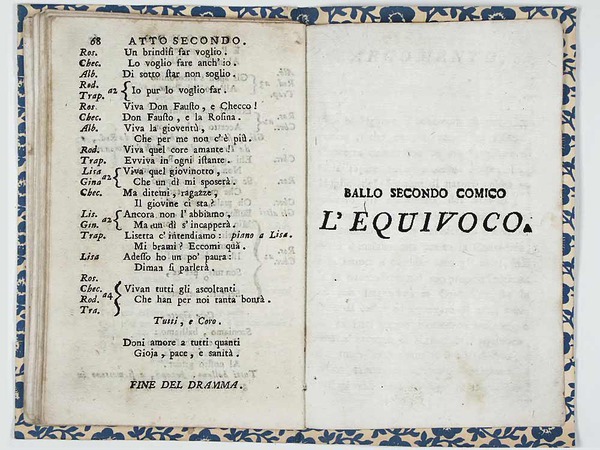 68 ATTO SECONDO.
Ros. Un brindisi far voglio.
Chec. Lo voglio fare anch' io.
Alb. Di sotto star non soglio.
Rod.
Trap. a2 { Io pur lo voglio far.
Ros. Viva Don Fausto, e Checco!
Chec. Don Fausto, e la Rosina.
Alb. Viva la gioventù,
Che per me non c'è più.
Rod. Viva quel core amante!
Trap. Evviva in ogni istante.
Lisa a2 { Viva quel giovinotto,
Gina Che un dì mi sposerà.
Chec. Ma ditemi, ragazze,
Il giovine ci sta?
Lis. a2 { Ancora non l'abbiamo,
Gin. Ma un dì s' incapperà.
Trap. Lisetta c'intendiamo: piano a Lisa.
Mi brami? Eccomi quà.
Lisa Adesso ho un po' paura:
Diman si parlerà.
Ros.
Chec. Vivan tutti gli ascoltanti
Rod. a4 { Che han per noi tanta bontà.
Tra.
Tutti, e Coro.
Doni amore a tutti quanti
Gioja, pace, e sanità.
FINE DEL DRAMMA.
BALLO SECONDO COMICO
L'EQUIVOCO.